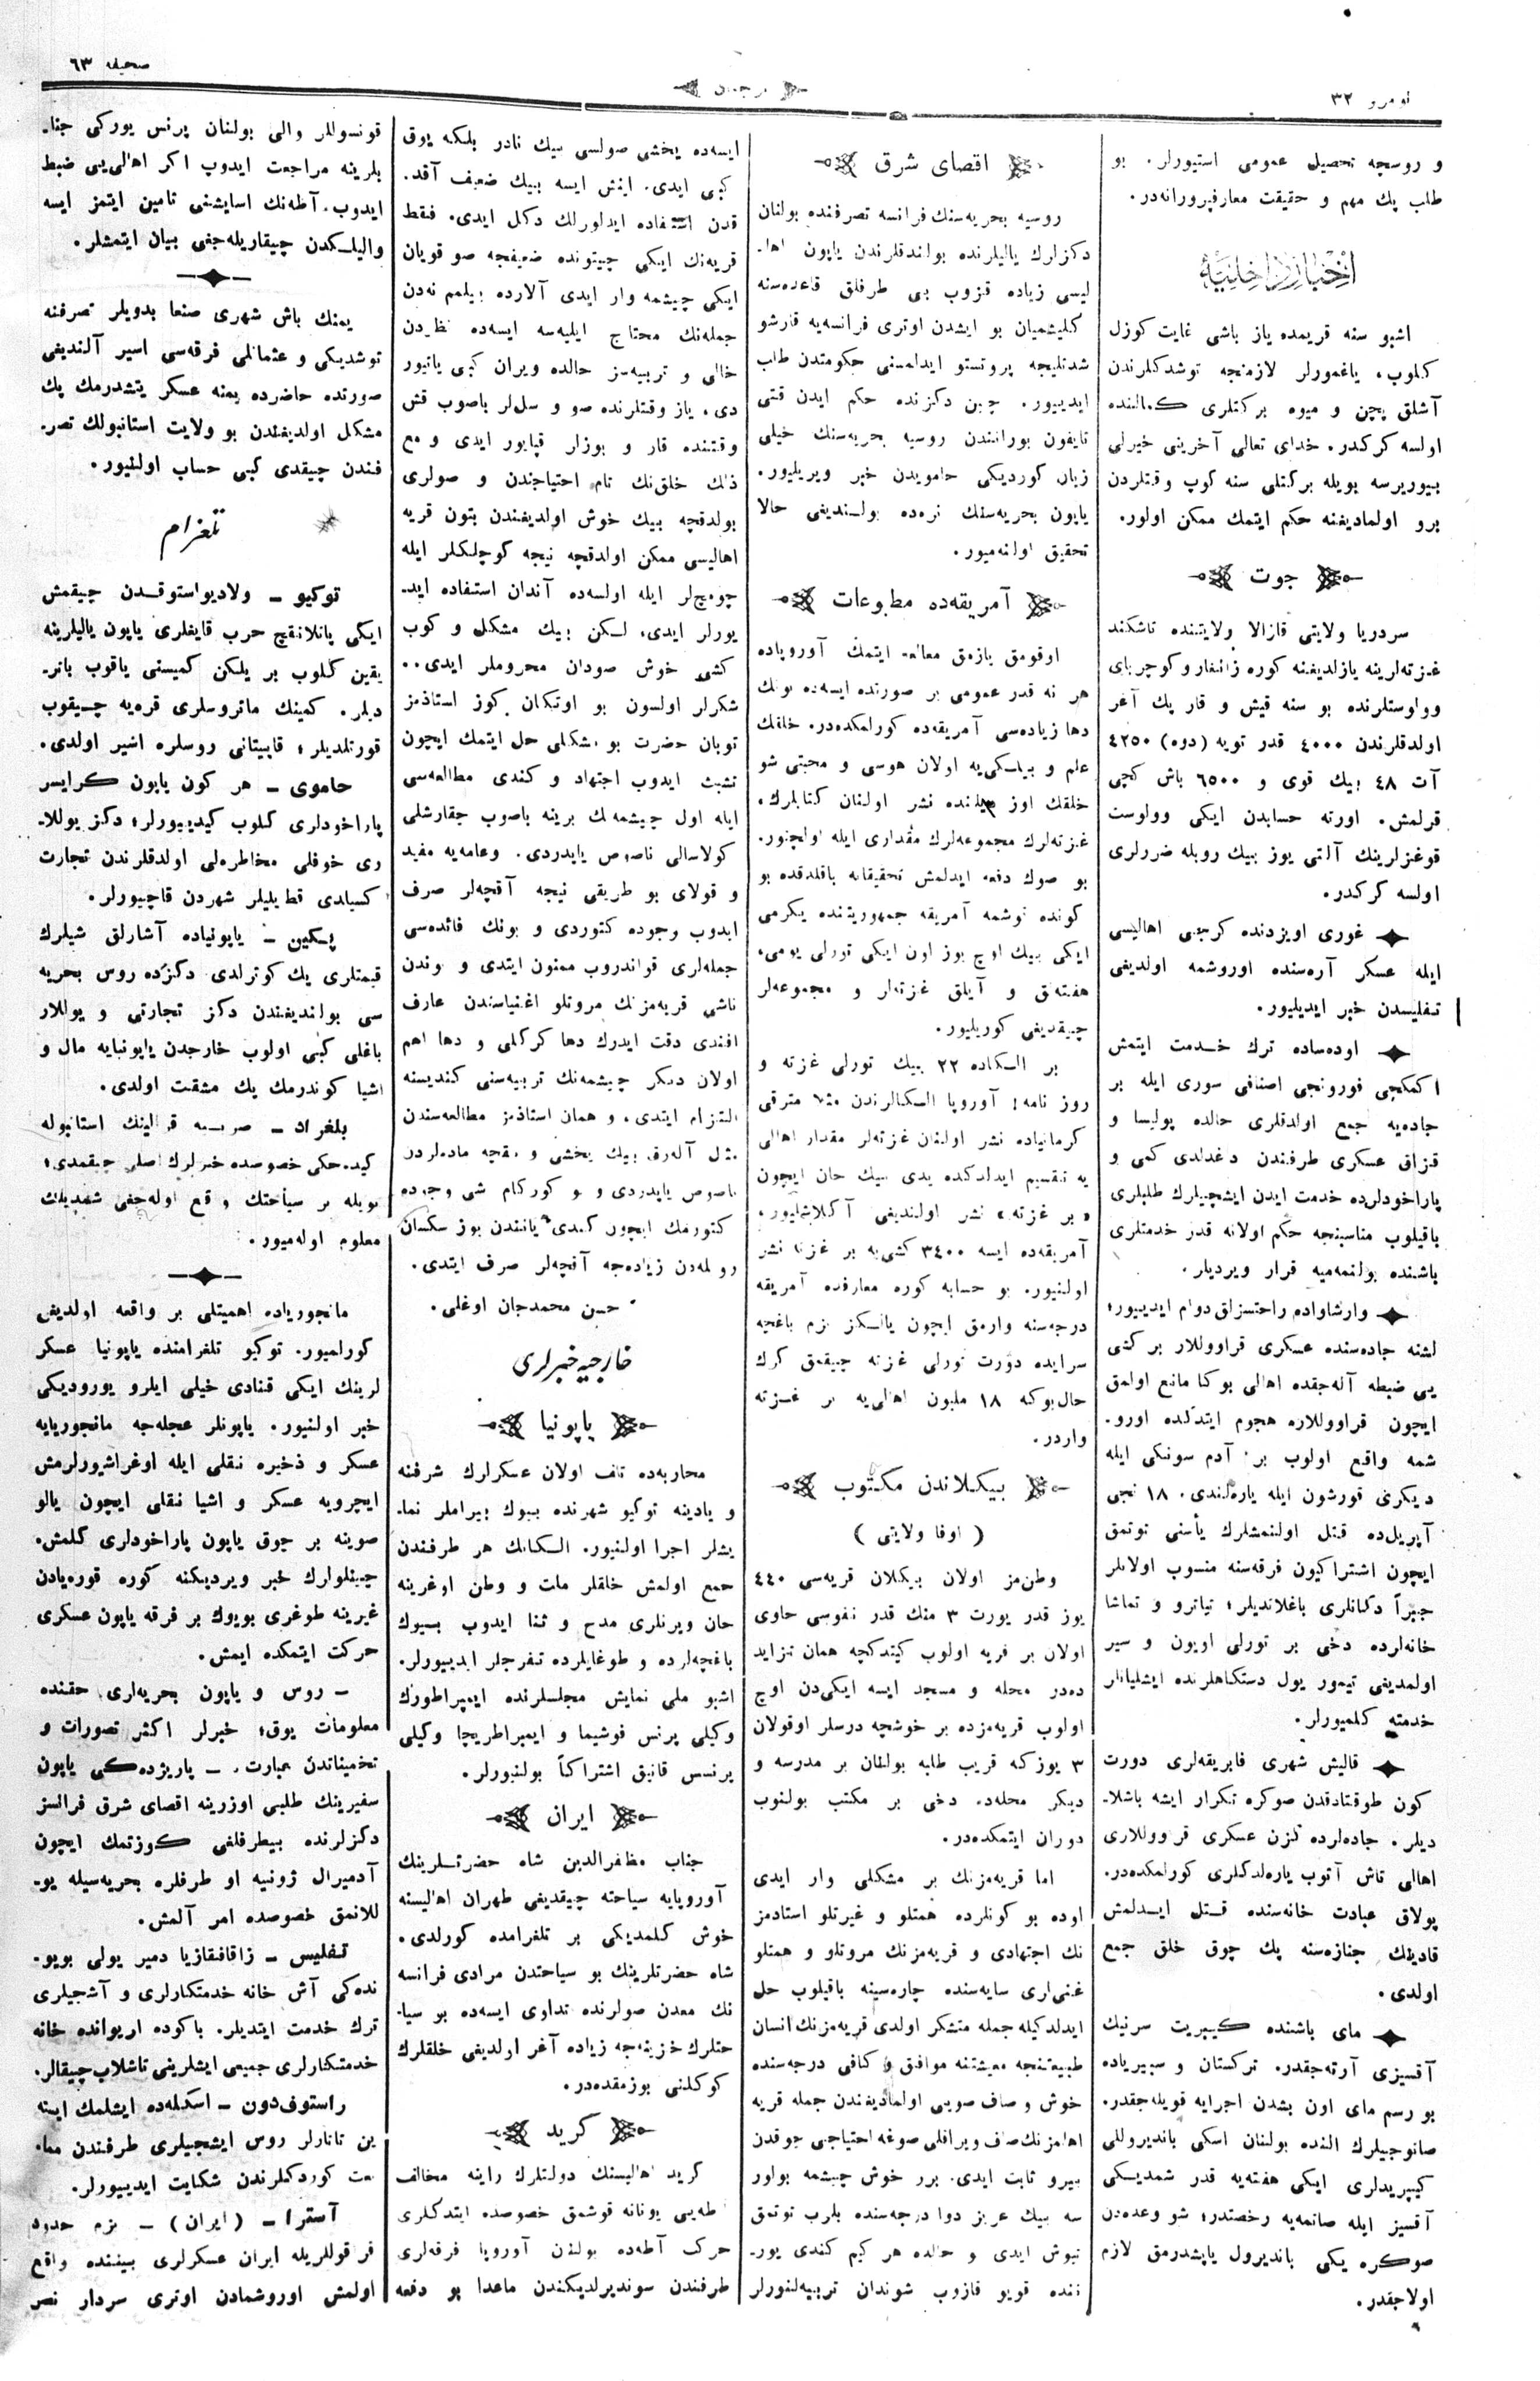 نومرو ٣٢
ترجمان
صحيفه ٦٣
و روسچه تحصيل عمومى استيورلر. بو
طلب پك مهم و حقيقت معارفپرورانه‌در.
اخبار داخليه
اشبو سنه قريمده ياز باشى غايت كوزل
كلوب، ياغمورلر لازمنجه توشدكلرندن
آشلق پچن و ميوه بركتلرى كمالنده
اولسه كركدر. خداى تعالى آخرينى خيرلى
بيوريرسه بويله بركتلى سنه كوپ وقتلردن
برو اولماديغنه حكم ايتمك ممكن اولور.
جوت
سردريا ولايتى قازالا ولايتنده تاشكند
غزته‌لرينه يازلديغنه كوره زانغار و كوچرباى
وولوستلرنده بو سنه قيش و قار پك آغر
اولدقلرندن ٤٠٠٠ قدر تويه (دوه) ٤٢٥٠
آت ٤٨ بيك قوى و ٦٥٠٠ باش كچى
قرلمش. اورته حسابدن ايكى وولوست
قوغزلرينك آلتى يوز بيك روبله ضررلرى
اولسه كركدر.
غورى اويزدنده كرجى اهاليسى
ايله عسكر آره‌سنده اوروشمه اولديغى
تفليسدن خبر ايديليور.
اوده‌ساده ترك خدمت ايتمش
اكمكچى فورونجى اصنافى سورى ايله بر
جاده‌يه جمع اولدقلرى حالده پوليسا و
قزاق عسكرى طرفندن دغدلدى كمى و
پاراخودلرده خدمت ايدن ايشچيلرك طلبلرى
باقيلوب مناسبنجه حكم اولانه قدر خدمتلرى
باشنده بولنمه‌ميه قرار ويرديلر.
وارشاواده راحتسزلق دوام ايدييور؛
لشنه جاده‌سنده عسكرى قراووللار بر كشى
يى ضبطه آله‌جقده اهالى بوكا مانع اولمق
ايچون قراووللاره هجوم ايتدكده اورو-
شمه واقع اولوب بر آدم سونكى ايله
ديكرى قورشون ايله ياره‌لندى. ١٨ نجى
آپريلده قتل اولنمشلرك يأسنى توتمق
ايچون اشتراكيون فرقه‌سنه منسوب اولانلر
جبراً دكانلرى باغلانديلر؛ تياترو و تماشا
خانه‌لرده دخى بر تورلى اويون و سير
اولمديغى تيمور يول دستكاهلرنده ايشليانلر
خدمته كلميورلر.
قاليش شهرى فابريقه‌لرى دورت
كون طوقتادقدن صوكره تكرار ايشه باشلا-
ديلر. جاده‌لرده كزن عسكرى قراووللارى
اهالى تاش آتوب ياره‌لدكلرى كورلمكده‌در.
پولاق عبادت خانه‌سنده قتل ايدلمش
قادينك جنازه‌سنه پك چوق خلق جمع
اولدى.
ماى باشنده كيبريت سرنيك
آقسيزى آرته‌جقدر. تركستان و سيبرياده
بو رسم ماى اون بشدن اجرايه قويله‌جقدر.
صانوجيلرك النده بولنان اسكى بانديروللى
كيبريدلرى ايكى هفته‌يه قدر شمديكى
آقسيز ايله صاتمه‌يه رخصتدر؛ شو وعده‌دن
صوكره يكى بانديرول ياپشدرمق لازم
اولاجقدر.
اقصاى شرق
روسيه بحريه‌سنك فرانسه تصرفنده بولنان
دكزلرك ياليلرنده بولندقلرندن ياپون اها-
ليسى زياده قزوب بى طرفلق قاعده‌سنه
كليشميان بو ايشدن اوترى فرانسه‌يه قارشو
شدتليجه پروتستو ايدلمسنى حكومتدن طلب
ايدييور. چين دكزنده حكم ايدن قتى
تايفون بورانندن روسيه بحريه‌سنك خيلى
زيان كورديكى حامويدن خبر ويريليور.
ياپون بحريه‌سنك نره‌ده بولنديغى حالا
تحقيق اولنه‌ميور.
آمريقه‌ده مطبوعات
اوقومق يازمق مطالعه ايتمك آوروپاده
هر نه قدر عمومى بر صورتده ايسه‌ده بونك
دها زياده‌سى آمريقه‌ده كورلمكده‌در. خلقك
علم و بيلمكه‌يه اولان هوسى و محبتى شو
خلقك اوز بيلنده نشر اولنان كتابلرك،
غزته‌لرك مجموعه‌لرك مقدارى ايله اولچنور.
بو صوك دفعه ايدلمش تحقيقاته باقلدقده بو
كونده توشمه آمريقه جمهوريتنده يكرمى
ايكى بيك اوچ يوز اون ايكى تورلى يومى،
هفته‌لق و آيلق غزته‌لر و مجموعه‌لر
چيقديغى كوريليور.
بر السكاده ٢٢ بيك تورلى غزته و
روز نامه! آوروپا السكالرندن مثلا مترقى
كرمانياده نشر اولنان غزته‌لر مقدار اهالى
يه تقسيم ايدلدكده يدى بيك جان ايچون
«بر غزته» نشر اولنديغى آكلاشليور،
آمريقه‌ده ايسه ٣٤٠٠ كشى‌يه بر غزته نشر
اولنيور. بو حسابه كوره معارفده آمريقه
درجه‌سنه وارمق ايچون يالكز بزم باغچه
سرايده دورت تورلى غزته چيقمق كرك
حال‌بوكه ١٨ مليون اهالى‌يه بر غزته
واردر.
بيكلاندن مكتوب
( اوفا ولايتى )
وطن‌مز اولان بيكلان قريه‌سى ٤٤٠
يوز قدر يورت ٣ منك قدر نفوسى حاوى
اولان بر قريه اولوب كيتدكچه همان تزايد
ده‌در محله و مسجد ايسه ايكى‌دن اوچ
اولوب قريه‌مزده بر خوشچه درسلر اوقولان
٣ يوزكه قريب طلبه بولنلن بر مدرسه و
ديكر محله‌ده دخى بر مكتب بولنوب
دوران ايتمكده‌در.
اما قريه‌مزنك بر مشكلى وار ايدى
اوده بو كونلرده همتلو و غيرتلو استادمز
نك اجتهادى و قريه‌مزنك مروتلو و همتلو
غنى‌لرى سايه‌سنده چاره‌سينه باقيلوب حل
ايدلدكيله جمله متشكر اولدى قريه‌مزنك انسان
طبيعتنجه معيشتنه موافق و كافى درجه‌سنده
خوش و صاف صويى اولماديغندن جمله قريه
اهلمزنك صاف و يراقلى صوغه احتياجى چوقدن
بيرو ثابت ايدى. برر خوش چيشمه بولور
سه بيك عزيز دوا درجه‌سنده بلرب توتمق
تيوش ايدى و حالده هر كيم كندى يور-
تنده قويو قازوب شوندان تربيه‌لنورلر
ايسه‌ده يخشى صولسى بيك نادر بلكه يوق
كبى ايدى. اينش ايسه بيك ضعيف آقد.
قدن استفاده ايدلورلك دكل ايدى. فقط
قريه‌نك ايكى چيتونده ضعيفجه صو قويان
ايكى چيشمه وار ايدى آلارده بيلمم نه‌دن
جمله‌نك محتاج ايليه‌سه ايسه‌ده نظردن
خالى و تربيه‌سز حالده ويران كبى ياتيور
دى، ياز وقتلرنده صو و سل‌لر باصوب قش
وقتنده قار و بوزلر قپايور ايدى و مع
ذلك خلق‌نك تام احتياجندن و صولرى
بولدقچه بيك خوش اولديغندن بتون قريه
اهاليسى ممكن اولدقچه نيجه كوچلكلر ايله
چومچ‌لر ايله اولسه‌ده آندان استفاده ايد-
يورلر ايدى، لكن بيك مشكل و كوب
كشى خوش صودان محروملر ايدى..
شكرلر اولسون بو اوتكان كوز استاذمز
توبان حضرت بو مشكلى حل ايتمك ايچون
تشبث ايدوب اجتهاد و كندى مطالعه‌سى
ايله اول چيشمه‌نك برينه باصوب چقارشلى
كولاسالى ناصوص ياپدردى. وعامه‌يه مفيد
و قولاى بو طريقى نيجه آقچه‌لر صرف
ايدوب وجوده كتوردى و بونك فائده‌سى
جمله‌لرى قواندروب ممنون ايتدى و بوندن
ناشى قريه‌مزنك مروتلو اغنياسندن عارف
افندى دقت ايدرك دها كركلى و دها اهم
اولان ديكر چيشمه‌نك تربيه‌سنى كنديسنه
التزام ايتدى، و همان استاذمز مطالعه‌سندن
مثل آله‌رق بيك يخشى و نقچه ماده‌لردن
ناصوص ياپدردى و بو كوركام شى وجوده
كتورمك ايچون كندى يانندن يوز سكسان
روبله‌دن زياده‌جه آقچه‌لر صرف ايتدى.
حسن محمدجان اوغلى.
خارجيه خبرلرى
ياپونيا
محاربه‌ده تلف اولان عسكرلرك شرفنه
و يادينه توكيو شهرنده بيوك بيراملر نما-
يشلر اجرا اولنيور. السكانك هر طرفندن
جمع اولمش خلقلر ملت و وطن اوغرينه
جان ويرنلرى مدح و ثنا ايدوب بيوك
باغچه‌لرده و طوغايلرده تفرجلر ايدييورلر.
اشبو ملى نمايش مجلسلرنده ايمپراطورك
وكيلى پرنس فوشيما و ايمپراطريچا وكيلى
پرنسس قانيق اشتراكاً بولنيورلر.
ايران
جناب مظفرالدين شاه حضرتلرينك
آوروپايه سياحته چيقديغى طهران اهاليسنه
خوش كلمديكى بر تلغرامده كورلدى.
شاه حضرتلرينك بو سياحتدن مرادى فرانسه
نك معدن صولرنده تداوى ايسه‌ده بو سيا-
حتلرك خزينه‌جه زياده آغر اولديغى خلقلرك
كوكلنى بوزمقده‌در.
كريد
كريد اهاليسنك دولتلرك رأينه مخالف
طه‌يى يونانه قوشمق خصوصده ايتدكلرى
حركت آطه‌ده بولنن آوروپا فرقه‌لرى
طرفندن سونديرلديكندن ماعدا بو دفعه
قونسوللر والى بولنان پرنس يوركى جنا-
بلرينه مراجعت ايدوب اكر اهالى‌يى ضبط
ايدوب، آطه‌نك اسايشنى تامين ايتمز ايسه
واليلكدن چيقاريله‌جغى بيان ايتمشلر.
يمنك باش شهرى صنعا بدويلر تصرفنه
توشديكى و عثمانلى فرقه‌سى اسير آلنديغى
صورتده حاضرده يمنه عسكر يتشدرمك پك
مشكل اولديغندن بو ولايت استانبولك تصر-
فندن چيقدى كبى حساب اولنيور.
تلغرام
توكيو ـ ولاديواستوقدن چيقمش
ايكى پانلانقچ حرب قايقلرى ياپون ياليلرينه
يقين كلوب بر يلكن كميسنى ياقوب باتر-
ديلر. كمينك ماتروسلرى قره‌يه چيقوب
قورتلديلر؛ قاپيتانى روسلره اسير اولدى.
حاموى ـ هر كون ياپون كرايسر
پاراخودلرى كلوب كيدييورلر؛ دكز يوللا-
رى خوفلى مخاطره‌لى اولدقلرندن تجارت
كسيلدى قطايليلر شهردن قاچيورلر.
پكين ـ ياپونياده آشارلق شيلرك
قيمتلرى پك كوترلدى دكزده روس بحريه
سى بولنديغندن دكز تجارتى و يوللار
باغلى كبى اولوب خارجدن ياپونيايه مال و
اشيا كوندرمك پك مشقت اولدى.
بلغراد ـ صربيه قرالينك استانبوله
كيده‌جكى خصوصده خبرلرك اصلى چيقمدى؛
بويله بر سياحتك وقع اوله‌جغى شمديلك
معلوم اوله‌ميور.
مانجورياده اهميتلى بر واقعه اولديغى
كورلميور. توكيو تلغرامنده ياپونيا عسكر
لرينك ايكى قنادى خيلى ايلرو يوروديكى
خبر اولنيور. ياپونلر عجله‌جه مانجوريايه
عسكر و ذخيره نقلى ايله اوغراشيورلرمش
ايچرويه عسكر و اشيا نقلى ايچون يالو
صوينه بر چوق ياپون پاراخودلرى كلمش.
چينلولرك خبر ويرديكنه كوره قوره‌يادن
غيرينه طوغرى بويوك بر فرقه ياپون عسكرى
حركت ايتمكده ايمش.
ـ روس و ياپون بحريه‌لرى حقنده
معلومات يوق؛ خبرلر اكثر تصورات و
تخميناتدن عبارت. ـ پاريژده‌كى ياپون
سفيرينك طلبى اوزرينه اقصاى شرق فرانسز
دكزلرنده بيطرفلغى كوزتمك ايچون
آدميرال ژونيه او طرفلره بحريه‌سيله يو-
للانمق خصوصده امر آلمش.
تفليس ـ زاقافقازيا دمير يولى بويو-
نده‌كى آش خانه خدمتكارلرى و آشجيلرى
ترك خدمت ايتديلر. باكوده اريوانده خانه
خدمتكارلرى جميعى ايشلرينى تاشلاب چيقالر.
راستوف‌دون ـ اسكله‌ده ايشلمك ايسته
ين تاتارلر روس ايشجيلرى طرفندن مما-
نعت كوردكلرندن شكايت ايدييورلر.
آسترا ـ (ايران) ـ بزم حدود
قراقوللريله ايران عسكرلرى بيننده واقع
اولمش اوروشمادن اوترى سردار نصر